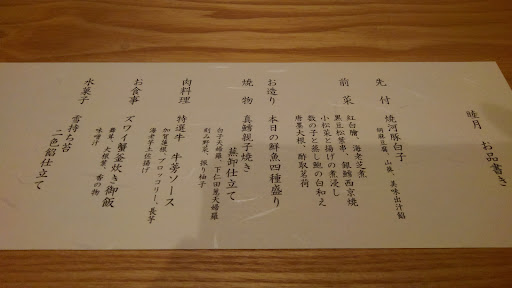 睦月　お品書き
先付　焼河豚白子
胡麻豆腐、山葵、美味出汁餡
前菜　紅白膾、海老芝煮
黒豆松葉串、銀鱈西京焼
小松菜と揚げの煮浸し
数の子と蒸し鮑の白和え
唐墨大根、酢取茗荷
お造り　本日の鮮魚四種盛り
焼物　真鱈親子焼き
蕪卸仕立て
白子天婦羅、下仁田葱天婦羅
刻み野菜、振り柚子
肉料理　特選牛　牛蒡ソース
加賀蓮根、ブロッコリー、長芋
海老芋土佐揚げ
お食事　ズワイ蟹釜炊き御飯
蕪菁、大根葉、香の物
味噌汁
水菓子　雪待ち苔
二色餡仕立て